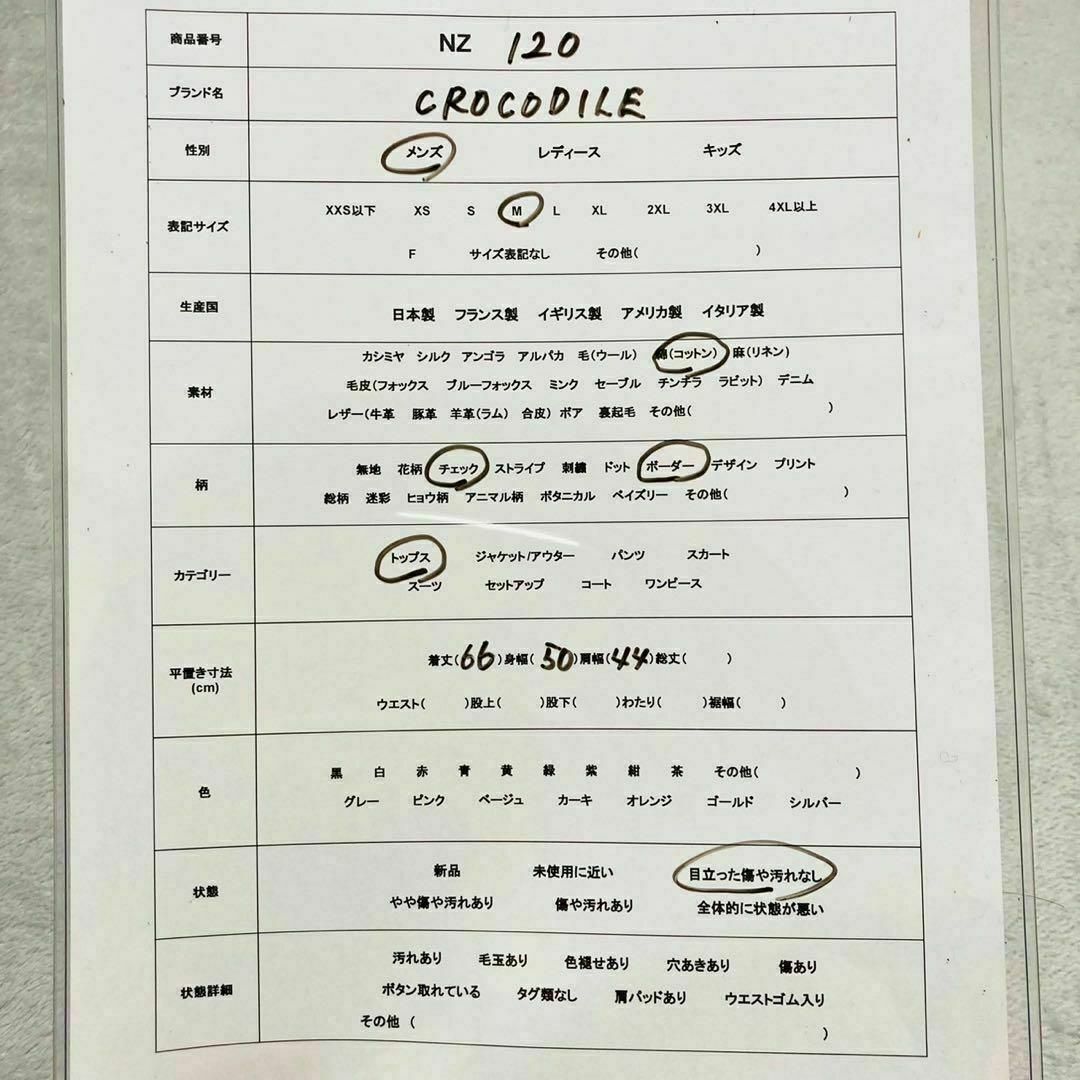 商品番号 NZ 120
ブランド名 CROCODILE
性別 メンズ レディース キッズ
XXS以下 XS S M L XL 2XL 3XL 4XL以上
表記サイズ
F サイズ表記なし その他( )
生産国 日本製 フランス製 イギリス製 アメリカ製 イタリア製
カシミヤ シルク アンゴラ アルパカ 毛(ウール) 綿(コットン) 麻(リネン)
毛皮(フォックス ブルーフォックス ミンク セーブル チンチラ ラビット) デニム
素材
レザー(牛革 豚革 羊革(ラム) 合皮) ボア 裏起毛 その他( )
無地 花柄 チェック ストライプ 刺繍 ドット ボーダー デザイン プリント
柄
総柄 迷彩 ヒョウ柄 アニマル柄 ボタニカル ペイズリー その他( )
トップス ジャケット/アウター パンツ スカート
カテゴリー
スーツ セットアップ コート ワンピース
着丈(66)身幅(50)肩幅(44)総丈( )
平置き寸法
(cm)
ウエスト( )股上( )股下( )わたり( )裾幅( )
黒 白 赤 青 黄 緑 紫 紺 茶 その他( )
色
グレー ピンク ベージュ カーキ オレンジ ゴールド シルバー
新品 未使用に近い 目立った傷や汚れなし
状態
やや傷や汚れあり 傷や汚れあり 全体的に状態が悪い
汚れあり 毛玉あり 色褪せあり 穴あきあり 傷あり
状態詳細 ボタン取れている タグ類なし 肩パッドあり ウエストゴム入り
その他 ( )